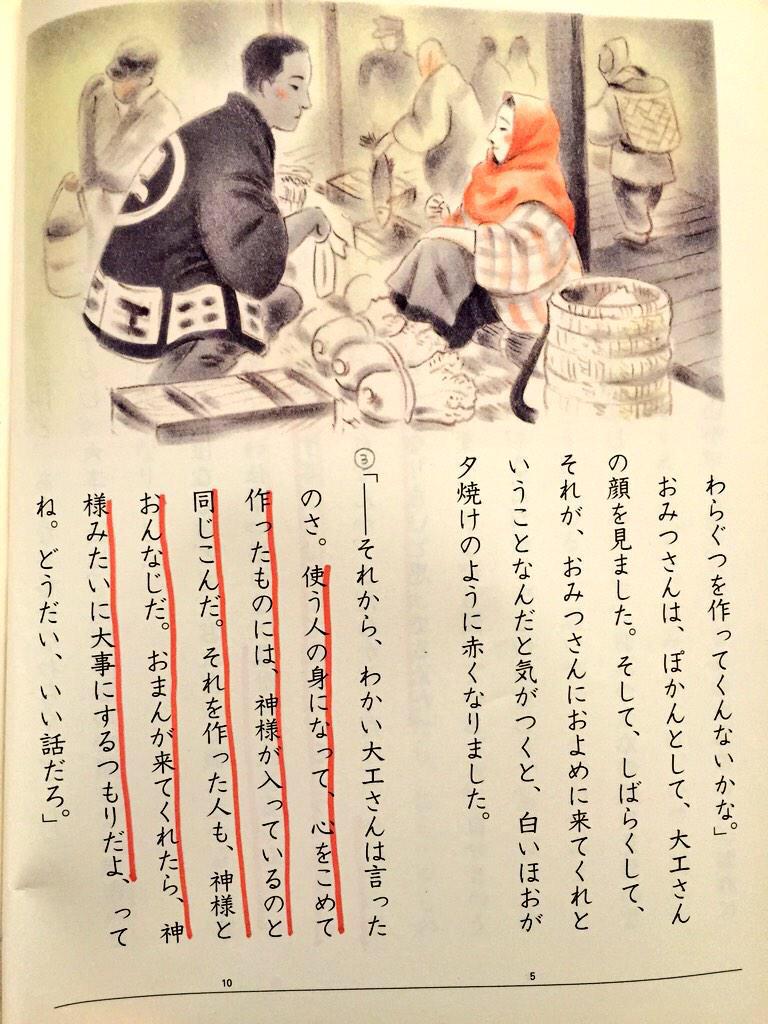 わらぐつを作ってくんないかな。」
おみつさんは、ぽかんとして、大工さん
の顔を見ました。そして、しばらくして、
それが、おみつさんにおよめに来てくれと
いうことなんだと気がつくと、白いほおが
夕焼けのように赤くなりました。
③「――それから、わかい大工さんは言った
のさ。使う人の身になって、心をこめて
作ったものには、神様が入っているのと
同じこんだ。それを作った人も、神様と
おんなじだ。おまんが来てくれたら、神
様みたいに大事にするつもりだよ、って
ね。どうだい、いい話だろ。」
5
10